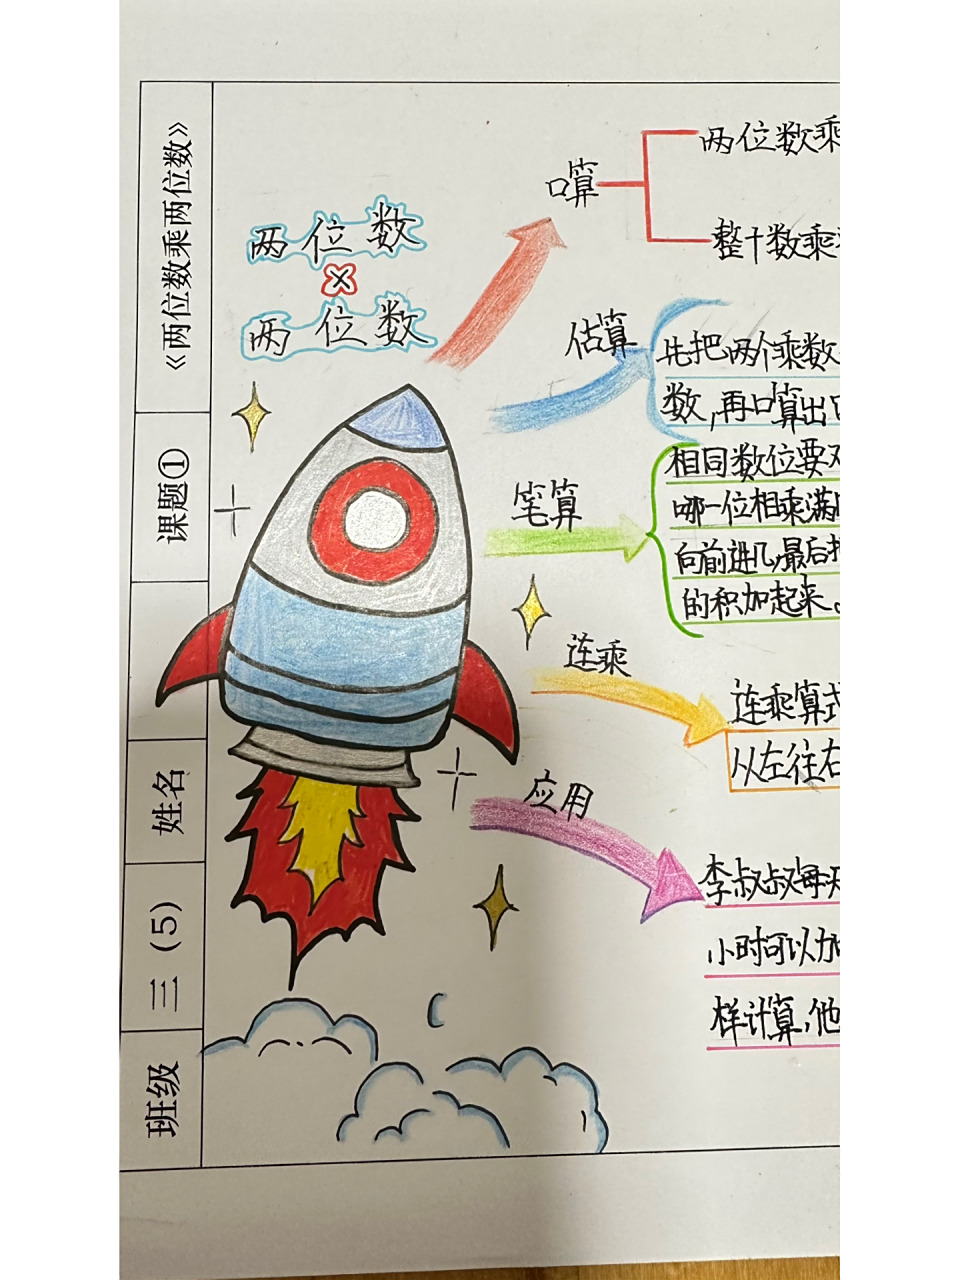 班级 三（5） 姓名 课题① 《两位数乘两位数》
两位数
×
两位数
口算
两位数乘
整十数乘
估算
先把两个乘数
数，再口算出
笔算
相同数位要
哪一位相乘满
向前进几，最后
的积加起来。
连乘
连乘算式
从左往右
应用
李叔叔每天
小时可以加
样计算，他